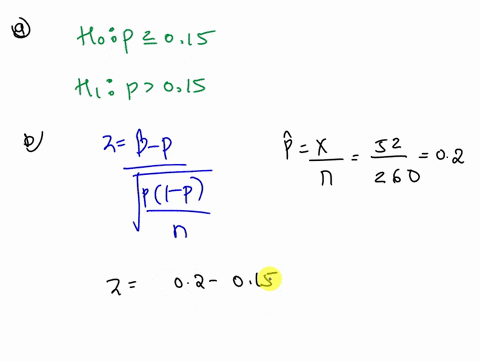 a) H₀: p ≤ 0.15
H₁: p > 0.15
b) z = p̂ - p / √(p(1-p)/n)
p̂ = x/n = 52/260 = 0.2
z = 0.2 - 0.15